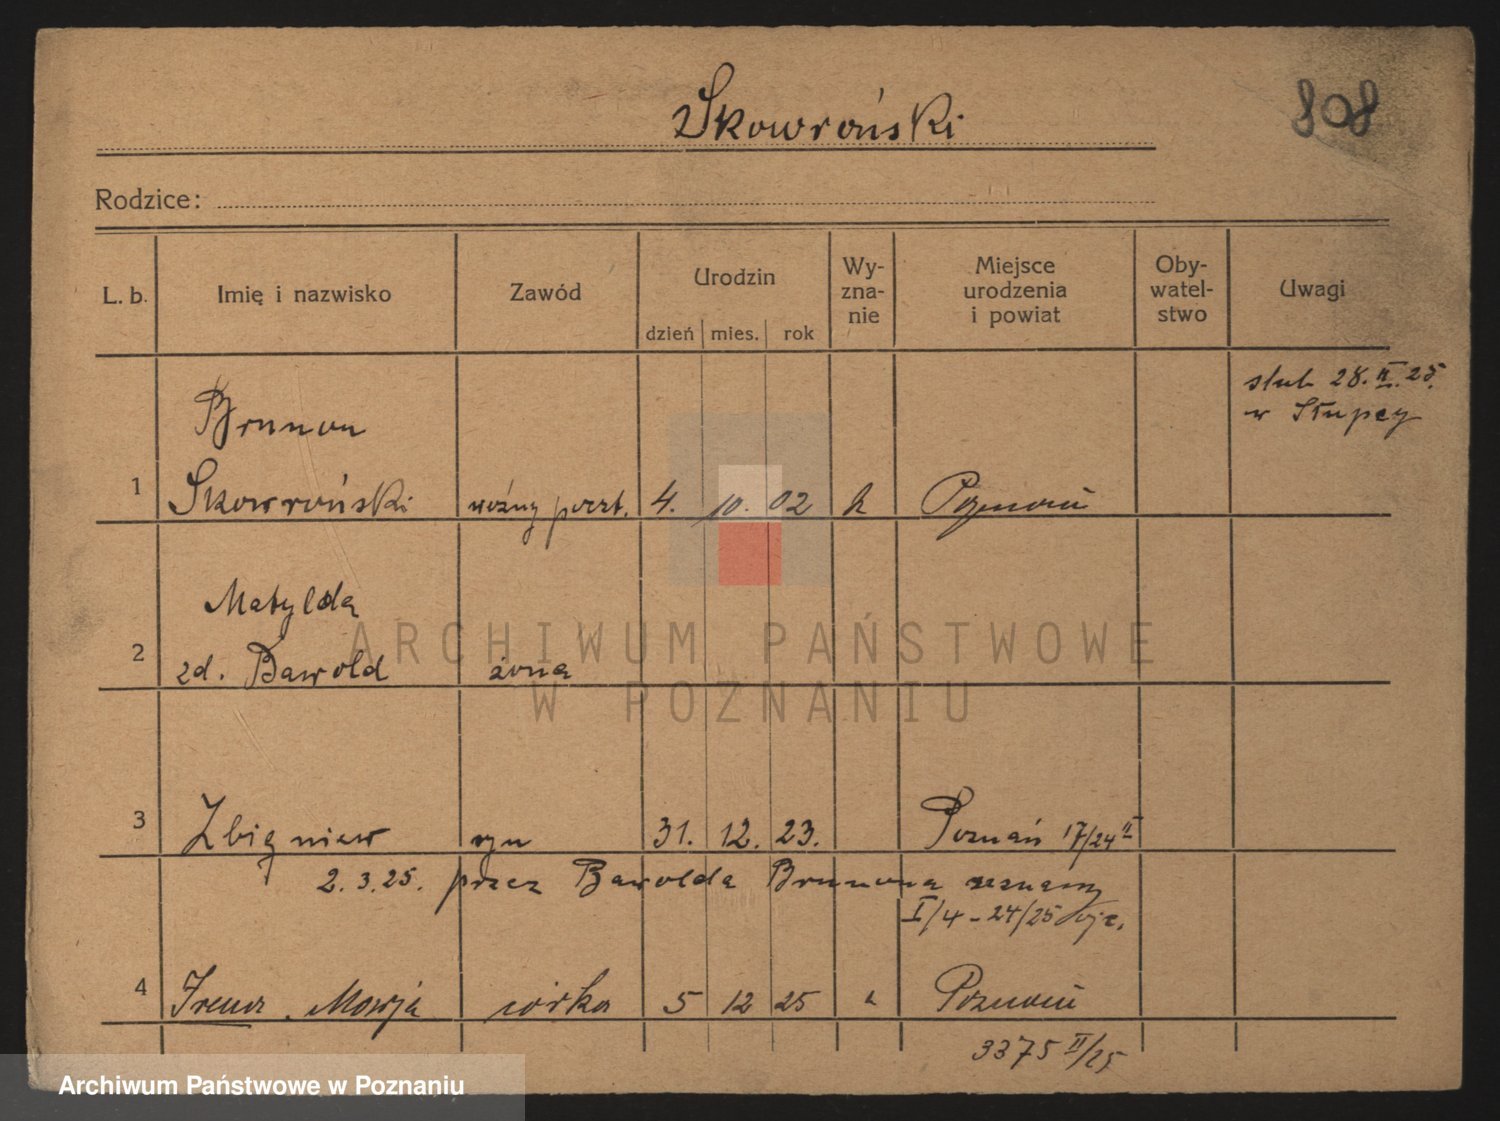 Skowroński
808
Rodzice:
L. b. Imię i nazwisko Zawód Urodzin Wy-zna-nie Miejsce urodzenia i powiat Oby-watel-stwo Uwagi
dzień mies. rok
ślub 28. II. 25.
w Słupcy
Brunon
1 Skowroński woźny poczt. 4. 10. 02 k Poznań
Matylda
2 zd. Bawold żona
3 Zbigniew syn 31. 12. 23. Poznań 17/24 II
2.3.25. przez Bawolda Brunona
I/4-24/25
4 Irena Marja córka 5 12 25 k Poznań
3375 II/25
ARCHIWUM PAŃSTWOWE
W POZNANIU
Archiwum Państwowe w Poznaniu